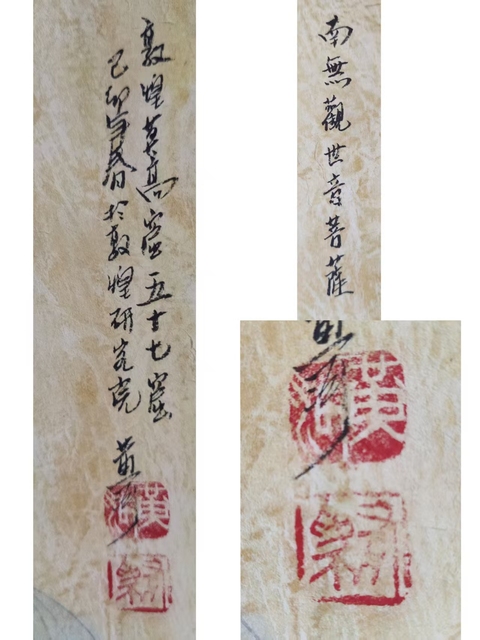 敦煌莫高窟五十七窟
己卯年春於敦煌研究院
黃
南無觀世音菩薩